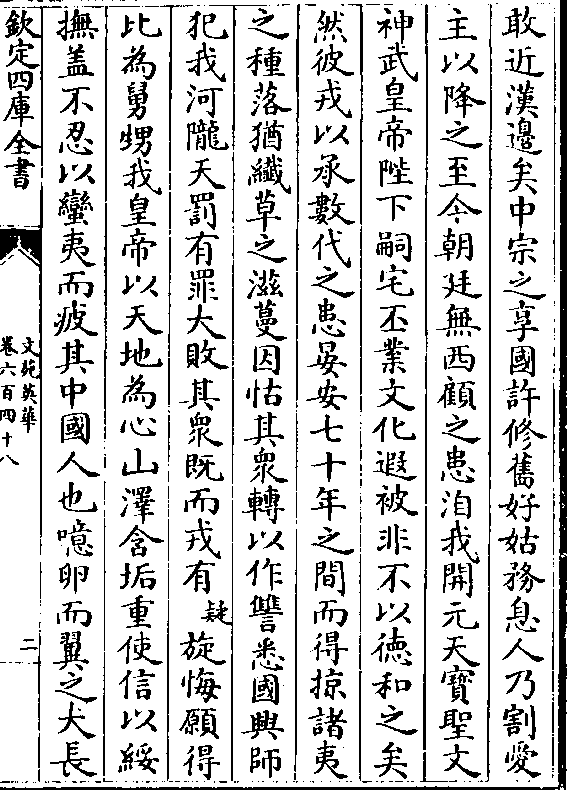 敢近漢邊矣中宗之享國許修舊好姑務息人乃割愛
主以降之至今朝廷無西顧之患洎我開元天寶聖文
神武皇帝陛下嗣宅丕業文化遐被非不以德和之矣
然彼戎以承數代之患晏安七十年之間而得掠諸夷
之種落猶纖草之滋蔓因怙其衆轉以作讐悉國興師
犯我河隴天罰有罪大敗其衆既而戎有疑旋悔願得
比為舅甥我皇帝以天地為心山澤含垢重使信以綏
撫蓋不忍以蠻夷而疲其中國人也噫卵而翼之犬長
欽定四庫全書
文苑英華
卷六百四十八
二